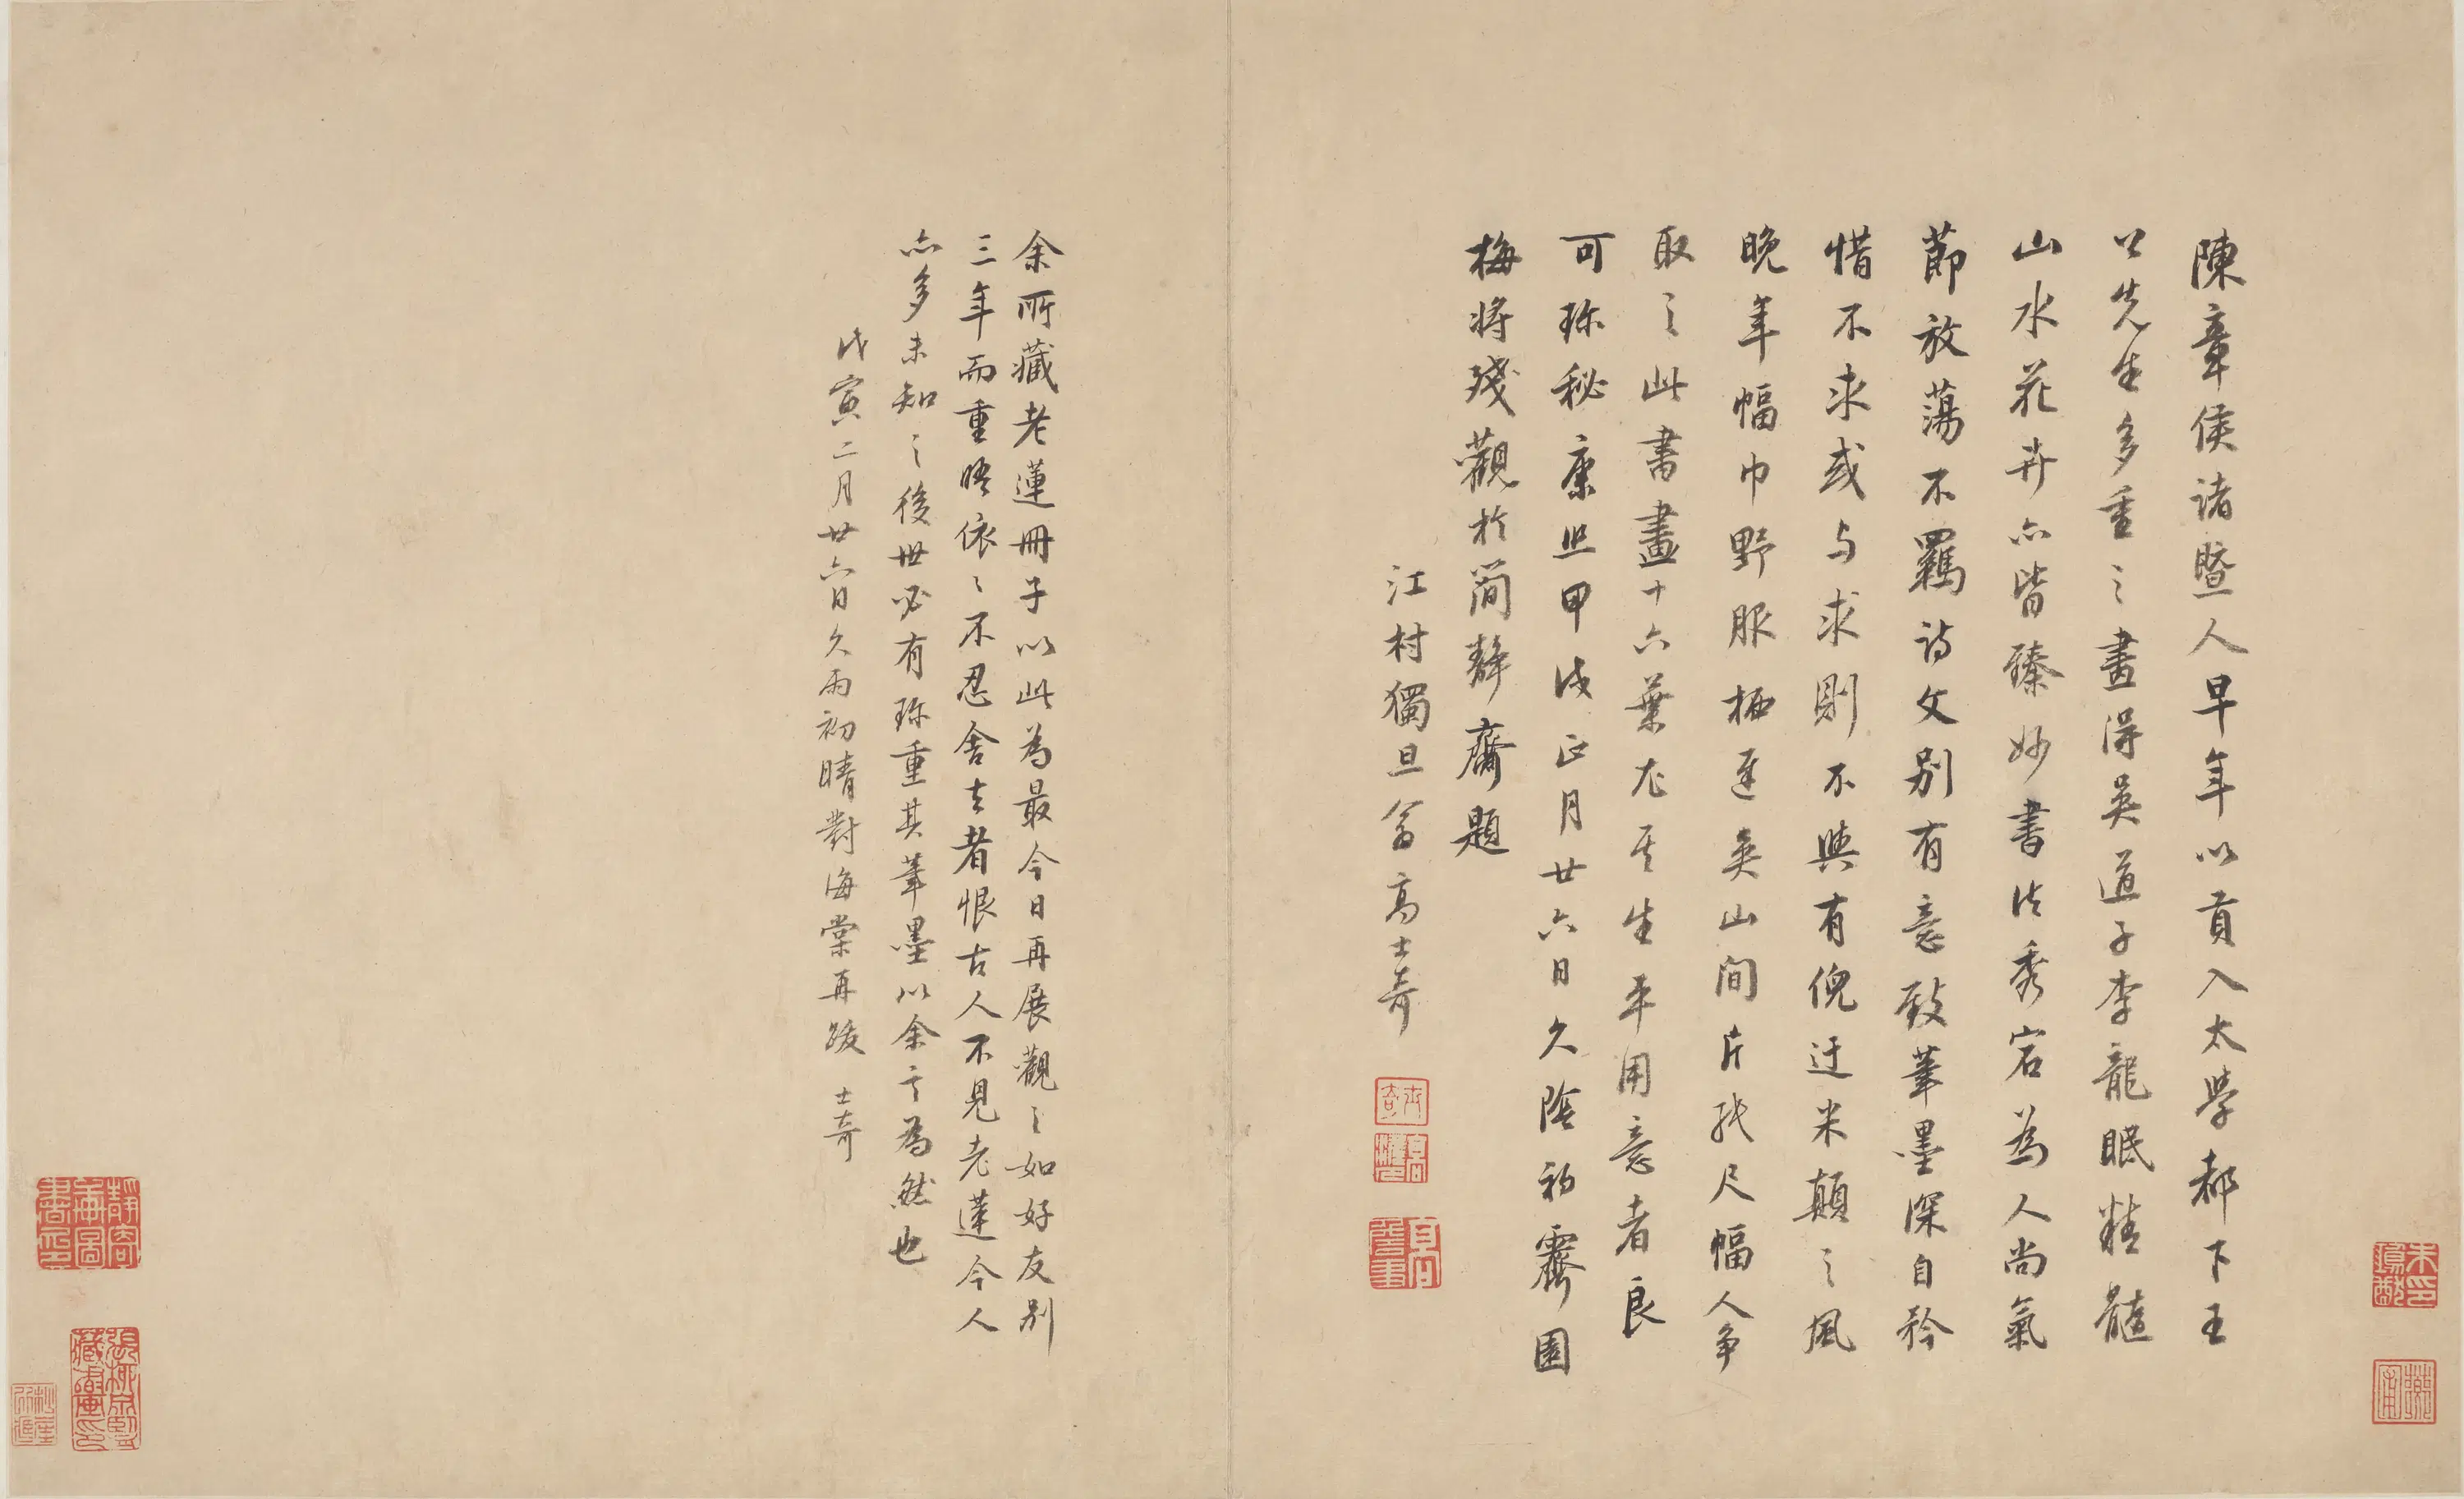 陳章侯諸暨人早年以貢入太學都下王
公先生多重之畫得吳道子李龍眠精髓
山水花卉亦皆臻妙書法秀宕為人尚氣
節放蕩不羈詩文別有意致筆墨深自矜
惜不求或与求則不與有倪迂米顛之風
晚年幅巾野服栖遲吳山間片紙尺幅人爭
取之此書畫十六葉尤其生平用意者良
可珎秘康熙甲戌正月廿六日久陰初霽園
梅將殘觀於簡靜齋題
江村獨旦翁高士奇
士奇
高士奇圖書
余所藏老蓮冊子以此為最今日再展觀之如好友別
三年而重晤依之不忍舍去者恨古人不見老蓮今人
亦多未知之後世必有珎重其筆墨以余言為然也
戊寅二月廿六日久雨初晴對海棠再跋 士奇
靜寄軒圖書印
張珩